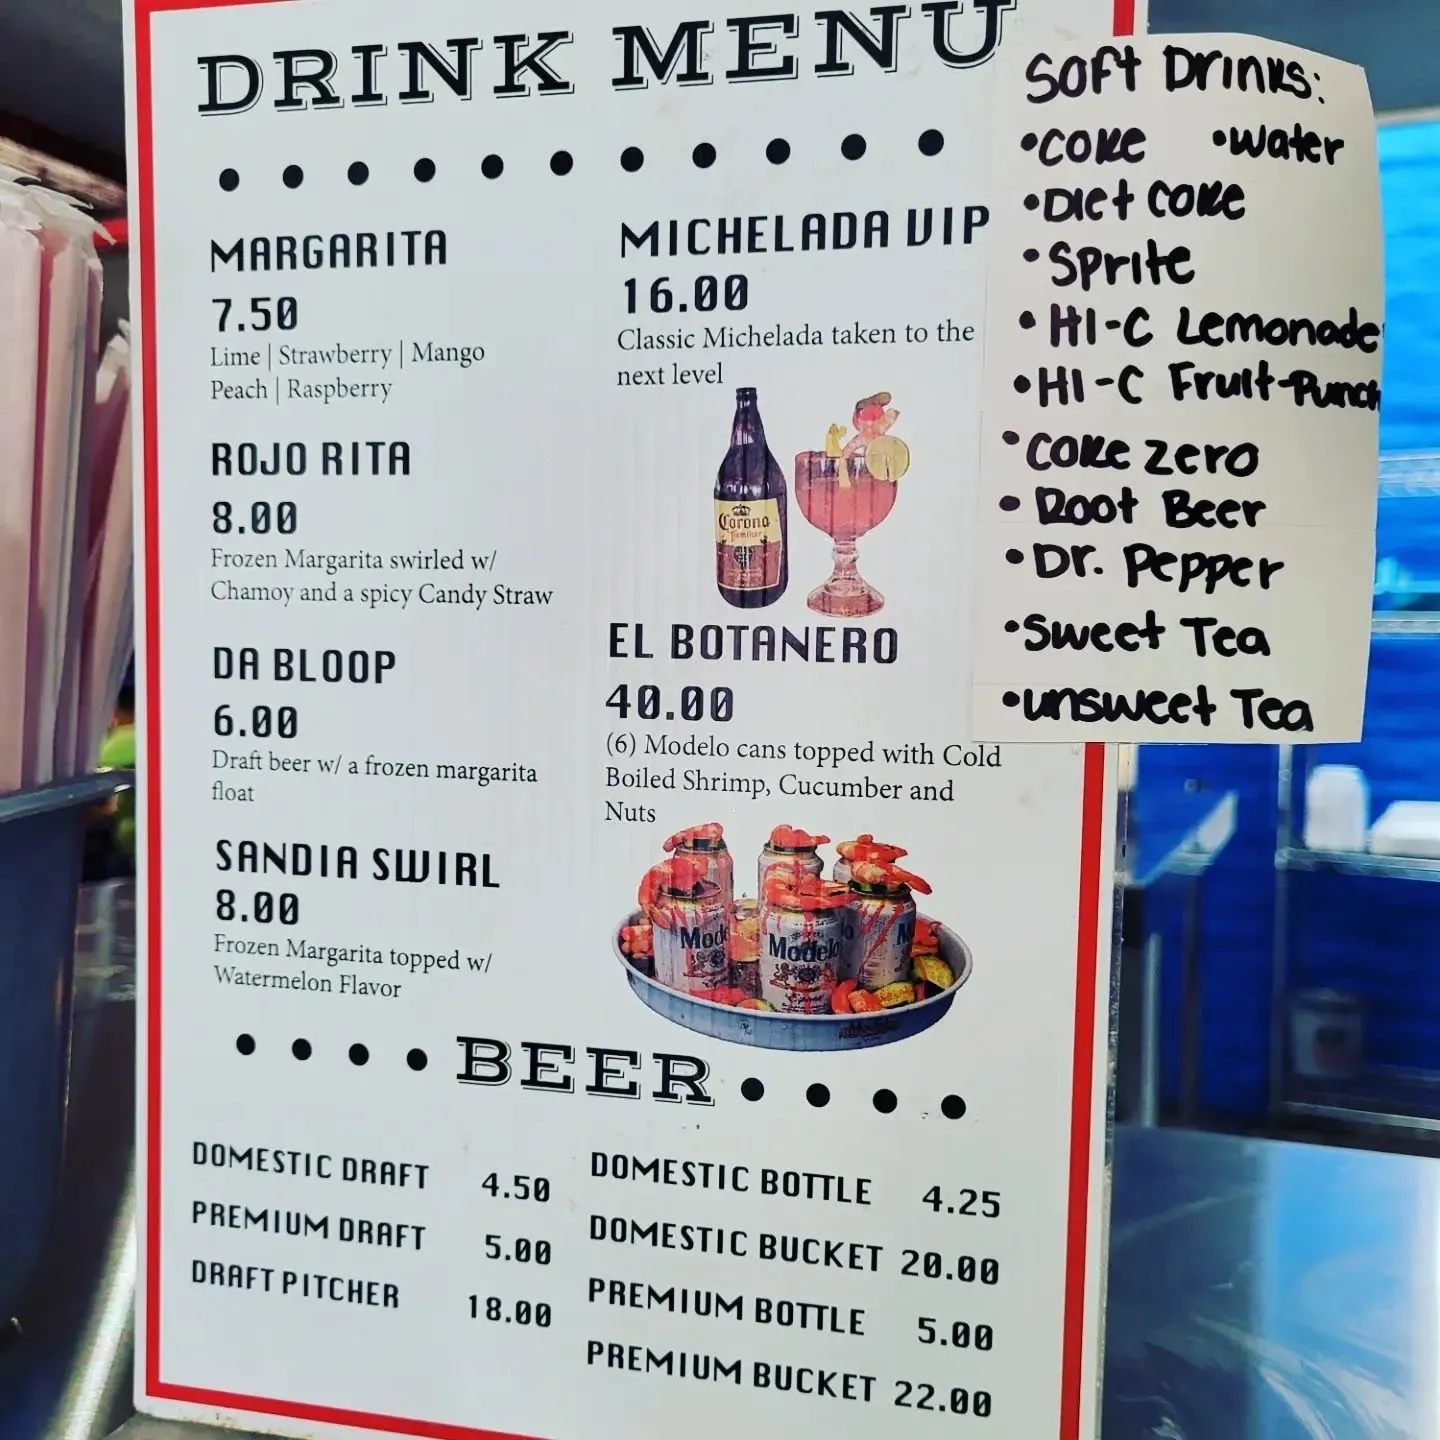 DRINK MENU
MARGARITA
7.50
Lime | Strawberry | Mango
Peach | Raspberry
ROJO RITA
8.00
Frozen Margarita swirled w/
Chamoy and a spicy Candy Straw
DA BLOOP
6.00
Draft beer w/ a frozen margarita
float
SANDIA SWIRL
8.00
Frozen Margarita topped w/
Watermelon Flavor
MICHELADA VIP
16.00
Classic Michelada taken to the
next level
Corona
Familiar
EL BOTANERO
40.00
(6) Modelo cans topped with Cold
Boiled Shrimp, Cucumber and
Nuts
Mode
Modelo
M
BEER
DOMESTIC DRAFT 4.50
PREMIUM DRAFT 5.00
DRAFT PITCHER 18.00
DOMESTIC BOTTLE 4.25
DOMESTIC BUCKET 20.00
PREMIUM BOTTLE 5.00
PREMIUM BUCKET 22.00
Soft Drinks:
•Coke •Water
•Diet Coke
•Sprite
•HI-C Lemonade
•HI-C Fruit-Punch
•Coke Zero
•Root Beer
•Dr. Pepper
•Sweet Tea
•unsweet Tea